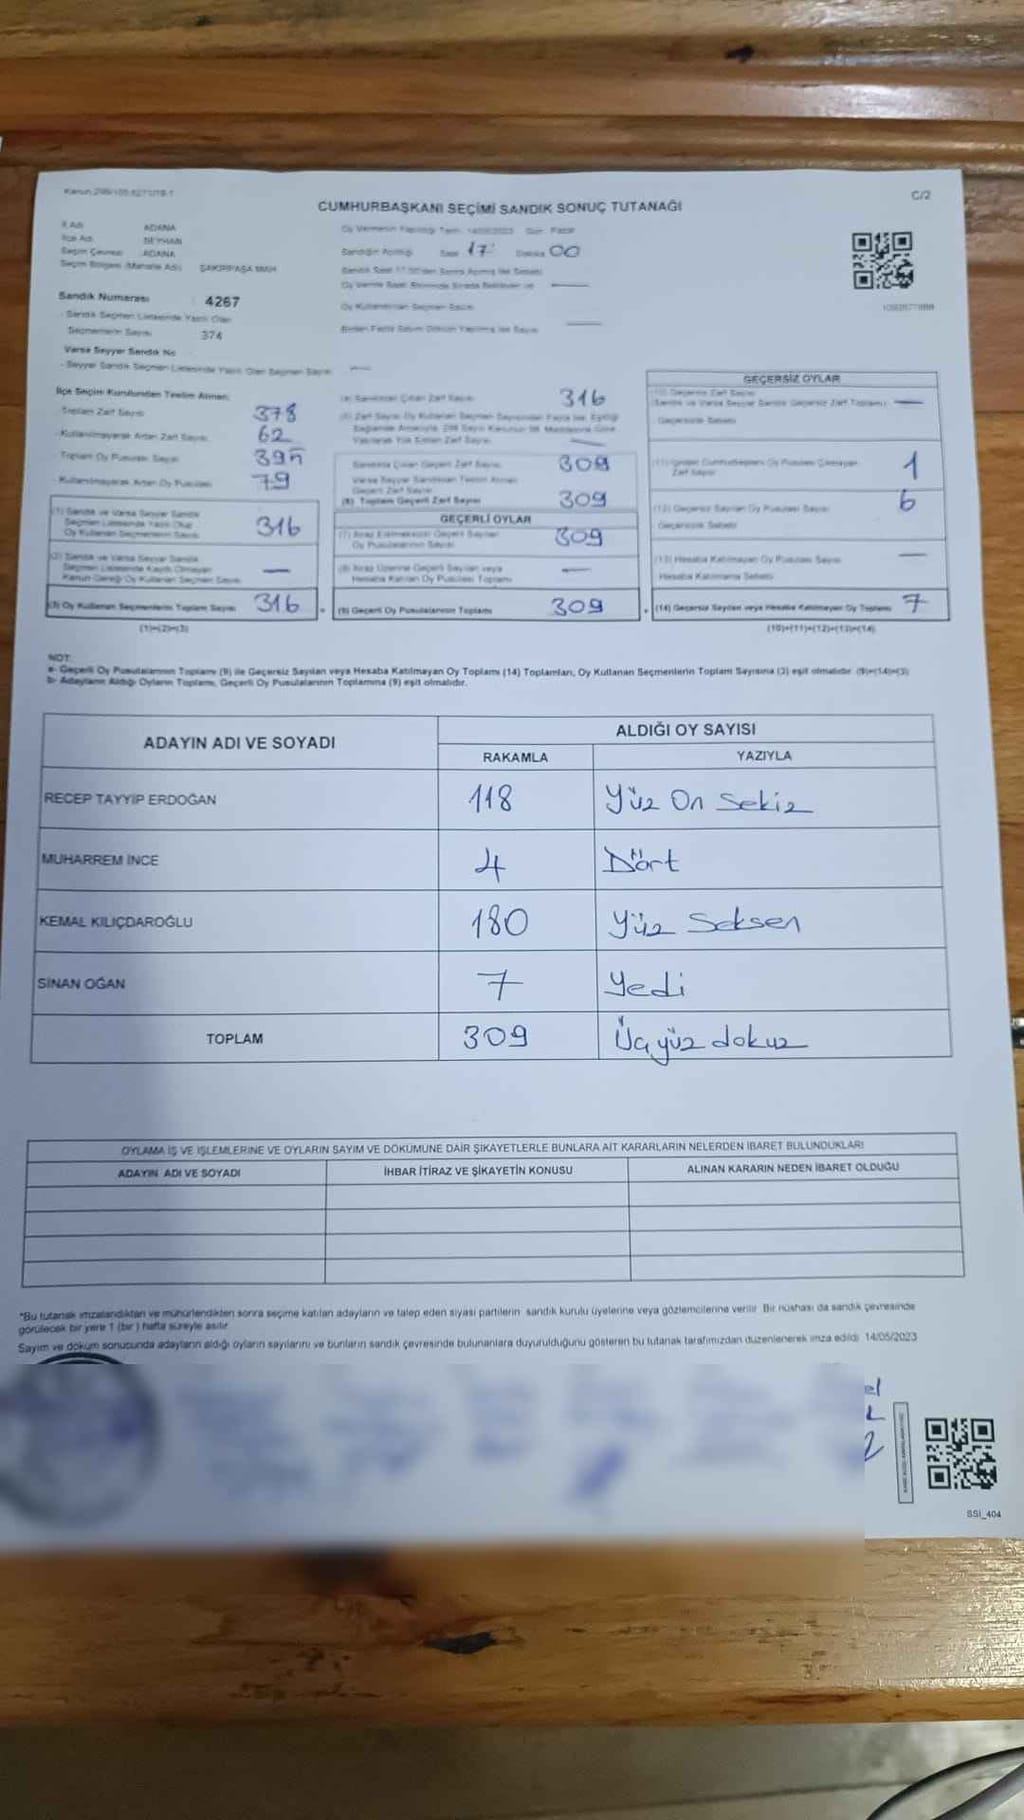 C/2
CUMHURBAŞKANI SEÇİMİ SANDIK SONUÇ TUTANAĞI
İl Adı ADANA
İlçe Adı SEYHAN
Seçim Çevresi ADANA
Seçim Bölgesi (Mahalle Adı) ŞAKİRPAŞA MAH
Sandık Numarası 4267
- Sandık Seçmen Listesinde Yazılı Olan
Seçmenlerin Sayısı 374
Varsa Seyyar Sandık No
- Seyyar Sandık Seçmen Listesinde Yazılı Olan Seçmen Sayısı —
Oy Vermenin Yapıldığı Tarih 14/05/2023 Gün Pazar
Sandığın Açıldığı Saat 17 Dakika 00
Oy Kullanılırken Seçmen Sayısı
Birden Fazla Sayım Döküm Yapılmış İse Sayısı —
İlçe Seçim Kurulundan Teslim Alınan;
Toplam Zarf Sayısı 378
- Kullanılmayarak Artan Zarf Sayısı 62
Toplam Oy Pusulası Sayısı
- Kullanılmayarak Artan Oy Pusulası 79
(1) Sandık ve Varsa Seyyar Sandık
Seçmen Listesinde Yazılı Olup
Oy Kullanan Seçmenlerin Sayısı 316
(2) Sandık ve Varsa Seyyar Sandık
Seçmen Listesinde Kayıtlı Olmayan
Kanun Gereği Oy Kullanan Seçmen Sayısı —
(3) Oy Kullanan Seçmenlerin Toplam Sayısı 316
(1)+(2)=(3)
(4) Sandıktan Çıkan Zarf Sayısı 316
Sandıkta Çıkan Geçerli Zarf Sayısı 309
Varsa Seyyar Sandıktan Teslim Alınan
Geçerli Zarf Sayısı
(6) Toplam Geçerli Zarf Sayısı 309
GEÇERLİ OYLAR
(7) İtiraz Edilmeksizin Geçerli Sayılan
Oy Pusulalarının Sayısı 309
(8) İtiraz Üzerine Geçerli Sayılan veya
Hesaba Katılan Oy Pusulası Toplamı —
(9) Geçerli Oy Pusulalarının Toplamı 309
GEÇERSİZ OYLAR
(10) Geçersiz Zarf Sayısı
(Sandık ve Varsa Seyyar Sandık Geçersiz Zarf Toplamı) —
Geçersizlik Sebebi
Zarf Sayısı 1
(12) Geçersiz Sayılan Oy Pusulası Sayısı 6
Geçersizlik Sebebi
(13) Hesaba Katılmayan Oy Pusulası Sayısı —
Hesaba Katılmama Sebebi
(14) Geçersiz Sayılan veya Hesaba Katılmayan Oy Toplamı 7
(10)+(11)+(12)+(13)=(14)
NOT:
a- Geçerli Oy Pusulalarının Toplamı (9) ile Geçersiz Sayılan veya Hesaba Katılmayan Oy Toplamı (14) Toplamları, Oy Kullanan Seçmenlerin Toplam Sayısına (3) eşit olmalıdır. (9)+(14)=(3)
b- Adayların Aldığı Oyların Toplamı, Geçerli Oy Pusulalarının Toplamına (9) eşit olmalıdır.
ADAYIN ADI VE SOYADI ALDIĞI OY SAYISI
RAKAMLA YAZIYLA
RECEP TAYYİP ERDOĞAN 118 Yüz On Sekiz
MUHARREM İNCE 4 Dört
KEMAL KILIÇDAROĞLU 180 Yüz Seksen
SİNAN OĞAN 7 Yedi
TOPLAM 309 Üçyüz dokuz
OYLAMA İŞ VE İŞLEMLERİNE VE OYLARIN SAYIM VE DÖKÜMÜNE DAİR ŞİKAYETLERLE BUNLARA AİT KARARLARIN NELERDEN İBARET BULUNDUKLARI
ADAYIN ADI VE SOYADI İHBAR İTİRAZ VE ŞİKAYETİN KONUSU ALINAN KARARIN NEDEN İBARET OLDUĞU
*Bu tutanak imzalandıktan ve mühürlendikten sonra seçime katılan adayların ve talep eden siyasi partilerin sandık kurulu üyelerine veya gözlemcilerine verilir. Bir nüshası da sandık çevresinde
görülecek bir yere 1 (bir) hafta süreyle asılır.
Sayım ve döküm sonucunda adayların aldığı oyların sayılarını ve bunların sandık çevresinde bulunanlara duyurulduğunu gösteren bu tutanak tarafımızdan düzenlenerek imza edildi. 14/05/2023
SSİ_404